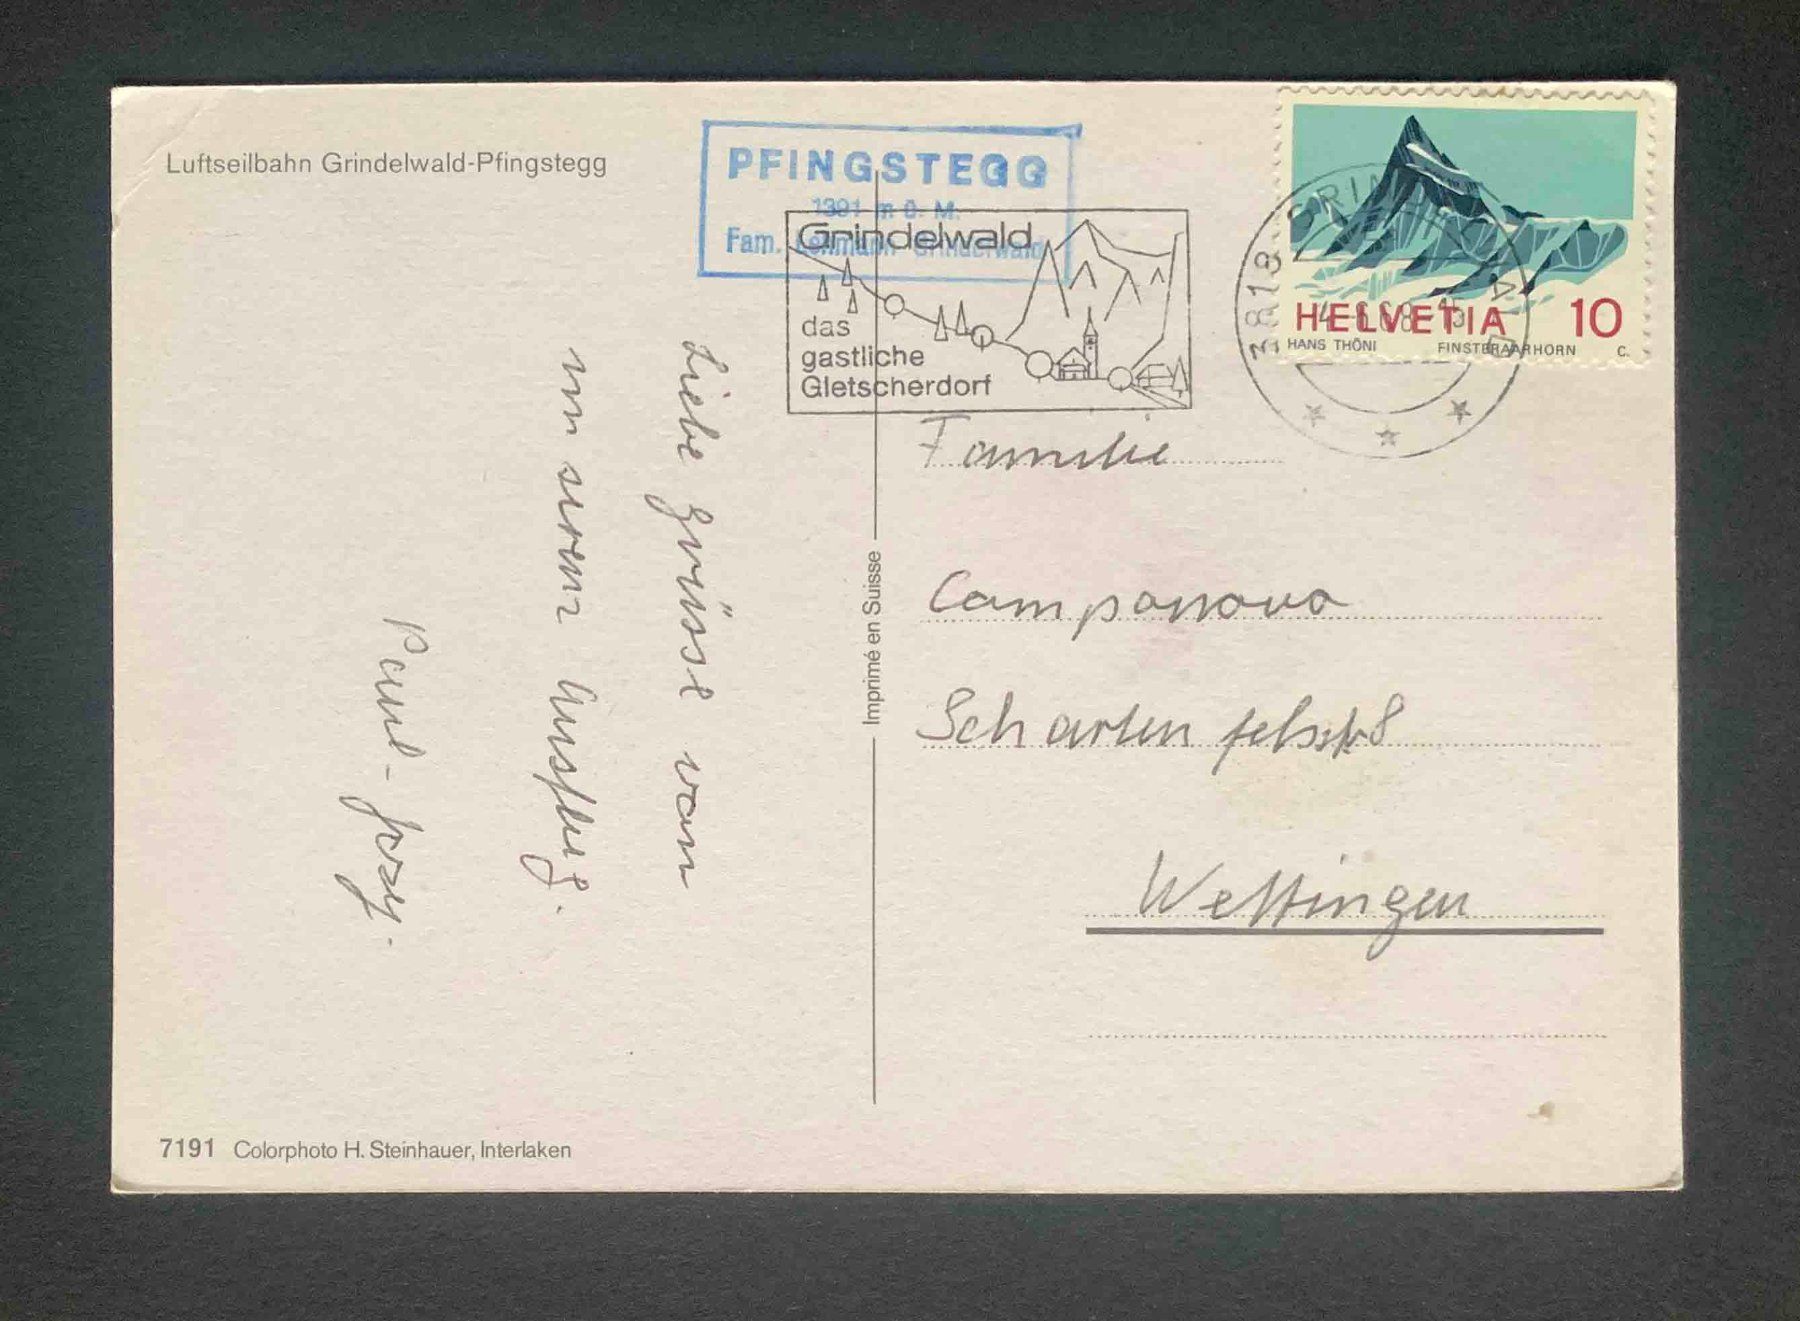 Luftseilbahn Grindelwald-Pfingstegg
PFINGSTEGG
1391 m ü. M.
Fam. Grindelwald
Grindelwald
das
gastliche
Gletscherdorf
3818 GRINDELWALD
HELVETIA 10
HANS THÖNI FINSTERAARHORN C.
Liebe Grüsse vom
Ausflug.
Paul - Josy.
Imprimé en Suisse
Familie
Campanova
Schartenfelsstr 8
Wettingen
7191 Colorphoto H. Steinhauer, Interlaken